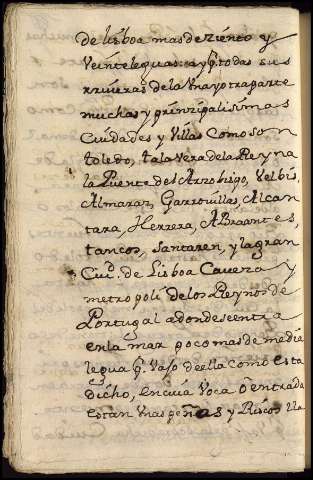 de lisboa mas de ziento y
Veinte leguas: ay q. todas sus
rriveras de la Una y otra parte
muchas y prinzipalisimas
Ciudades y Villas Como son
toledo, talaVera de la Reyna
la Puente del Arzobispo, Velbis,
Almaraz, Garrovillas, Alcan
tara, Herrera, ABraantes,
tancos, santaren, y la gran
Ciu.d de Lisboa Caveza y
metropoli de los Reynos de
Portugal a donde se entra
en la mar poco mas de media
legua q. Vajo de ella como esta
dicho, en cuia Voca o entrada
estan Unas peñas y Riscos lla